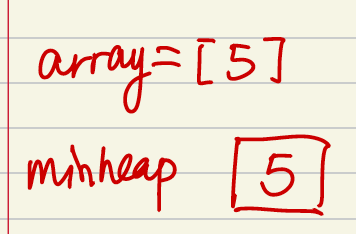 array=[5]
minheap 5